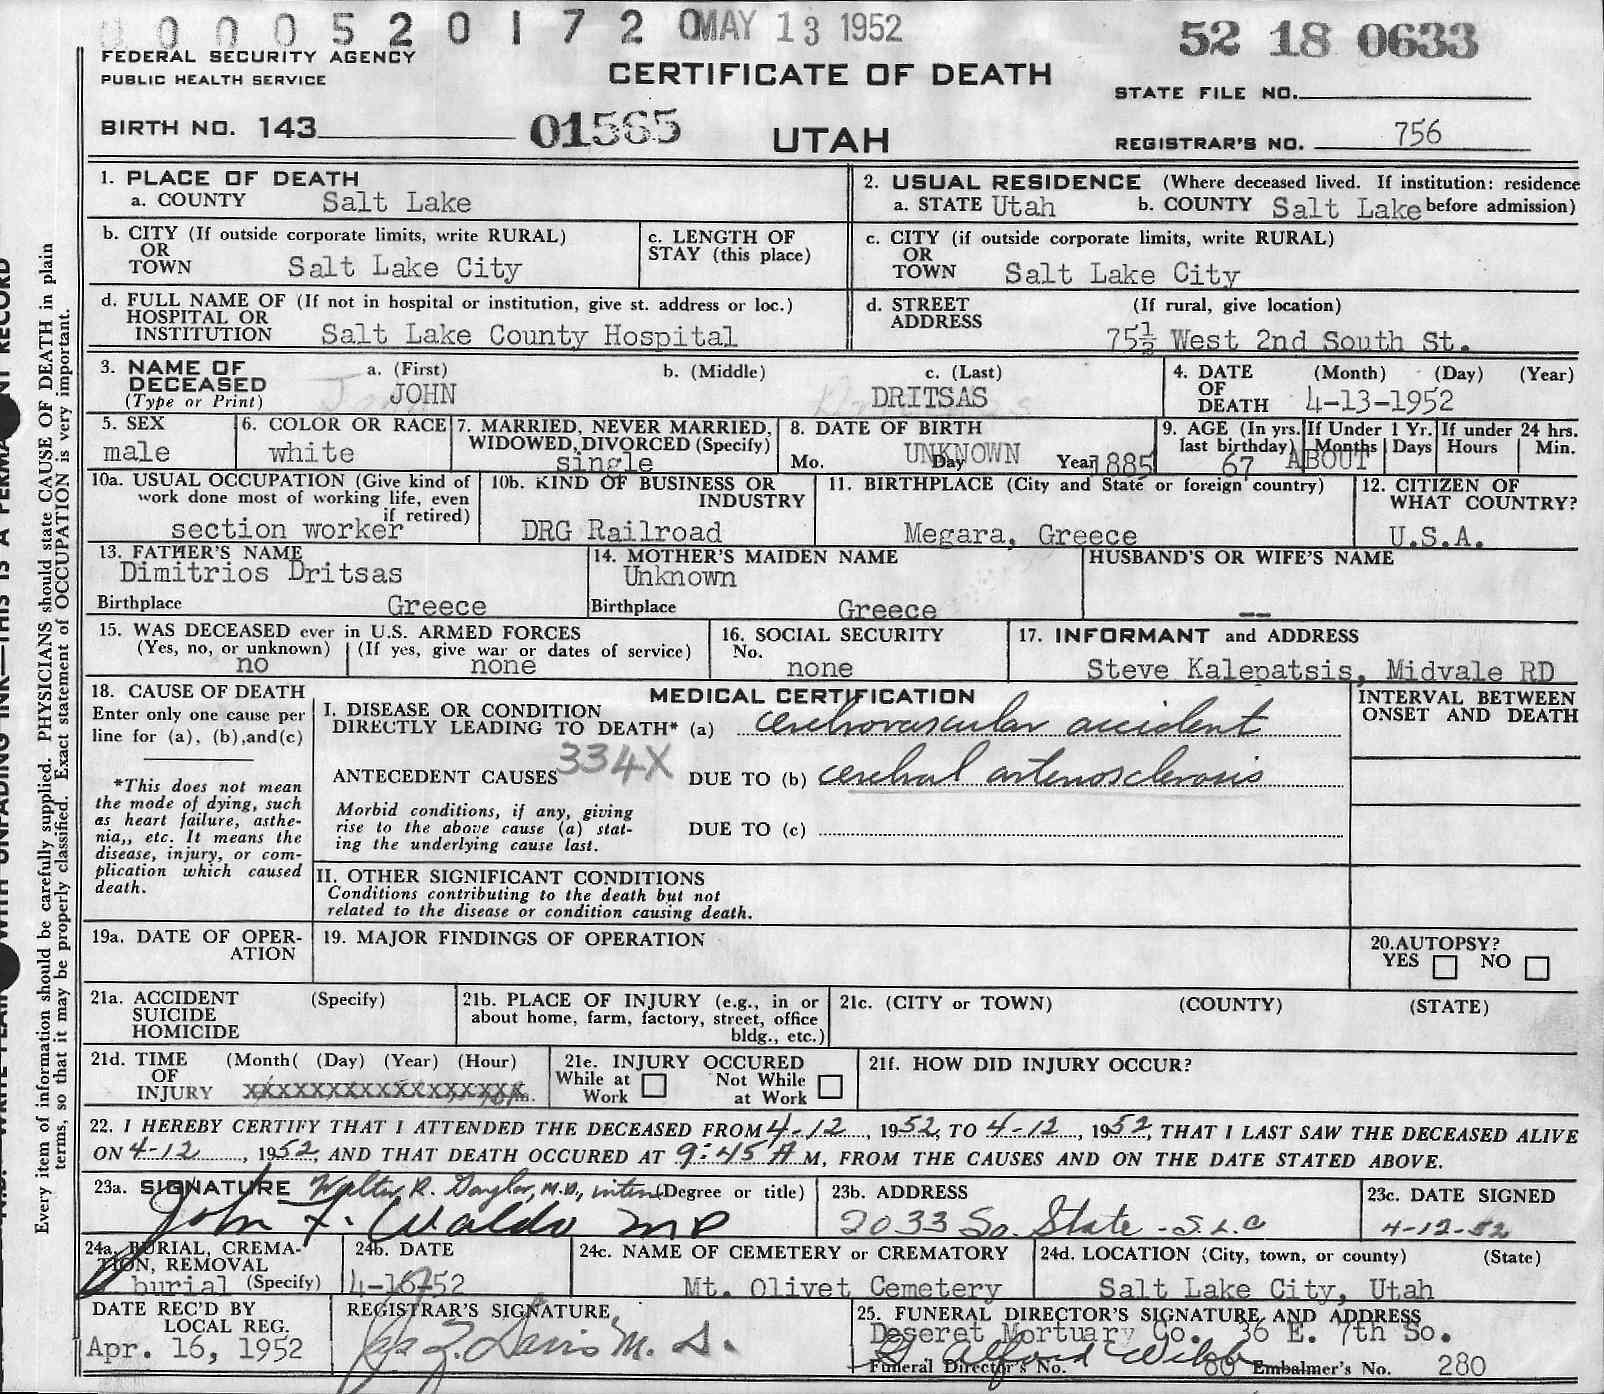 0 0 0 5 2 0 1 7 2 0 MAY 13 1952
52 18 0633
FEDERAL SECURITY AGENCY
PUBLIC HEALTH SERVICE
CERTIFICATE OF DEATH
STATE FILE NO.
BIRTH NO. 143 01565
UTAH
REGISTRAR'S NO. 756
1. PLACE OF DEATH
a. COUNTY Salt Lake
2. USUAL RESIDENCE (Where deceased lived. If institution: residence
a. STATE Utah b. COUNTY Salt Lake before admission)
b. CITY (If outside corporate limits, write RURAL)
OR
TOWN Salt Lake City
c. LENGTH OF
STAY (this place)
c. CITY (if outside corporate limits, write RURAL)
OR
TOWN Salt Lake City
d. FULL NAME OF (If not in hospital or institution, give st. address or loc.)
HOSPITAL OR
INSTITUTION Salt Lake County Hospital
d. STREET (If rural, give location)
ADDRESS
75½ West 2nd South St.
3. NAME OF
DECEASED
(Type or Print)
a. (First) b. (Middle) c. (Last)
JOHN DRITSAS
4. DATE (Month) (Day) (Year)
OF
DEATH 4-13-1952
5. SEX
male
6. COLOR OR RACE
white
7. MARRIED, NEVER MARRIED,
WIDOWED, DIVORCED (Specify)
single
8. DATE OF BIRTH
UNKNOWN
Mo. Day Year 1885
9. AGE (In yrs. last birthday) 67 ABOUT
If Under 1 Yr. Months Days
If under 24 hrs. Hours Min.
10a. USUAL OCCUPATION (Give kind of
work done most of working life, even
if retired)
section worker
10b. KIND OF BUSINESS OR
INDUSTRY
DRG Railroad
11. BIRTHPLACE (City and State or foreign country)
Megara, Greece
12. CITIZEN OF
WHAT COUNTRY?
U.S.A.
13. FATHER'S NAME
Dimitrios Dritsas
Birthplace Greece
14. MOTHER'S MAIDEN NAME
Unknown
Birthplace Greece
HUSBAND'S OR WIFE'S NAME
--
15. WAS DECEASED ever in U.S. ARMED FORCES
(Yes, no, or unknown) (If yes, give war or dates of service)
no none
16. SOCIAL SECURITY
No.
none
17. INFORMANT and ADDRESS
Steve Kalepatsis, Midvale RD
18. CAUSE OF DEATH
Enter only one cause per
line for (a), (b),and(c)
*This does not mean
the mode of dying, such
as heart failure, asthe-
nia,, etc. It means the
disease, injury, or com-
plication which caused
death.
MEDICAL CERTIFICATION
I. DISEASE OR CONDITION
DIRECTLY LEADING TO DEATH* (a) cerebrovascular accident
ANTECEDENT CAUSES 334X DUE TO (b) cerebral arteriosclerosis
Morbid conditions, if any, giving
rise to the above cause (a) stat-
ing the underlying cause last.
DUE TO (c)
INTERVAL BETWEEN
ONSET AND DEATH
II. OTHER SIGNIFICANT CONDITIONS
Conditions contributing to the death but not
related to the disease or condition causing death.
19a. DATE OF OPER-
ATION
19. MAJOR FINDINGS OF OPERATION
20. AUTOPSY?
YES NO
21a. ACCIDENT (Specify)
SUICIDE
HOMICIDE
21b. PLACE OF INJURY (e.g., in or
about home, farm, factory, street, office
bldg., etc.)
21c. (CITY or TOWN) (COUNTY) (STATE)
21d. TIME (Month( (Day) (Year) (Hour)
OF
INJURY XXXXXXXXXXXXXXXXXX m.
21e. INJURY OCCURED
While at Not While
Work at Work
21f. HOW DID INJURY OCCUR?
22. I HEREBY CERTIFY THAT I ATTENDED THE DECEASED FROM 4-12, 1952, TO 4-12, 1952, THAT I LAST SAW THE DECEASED ALIVE
ON 4-12, 1952, AND THAT DEATH OCCURED AT 9:45 A M, FROM THE CAUSES AND ON THE DATE STATED ABOVE.
23a. SIGNATURE Walter R. M.D., intern (Degree or title)
John F. Waldo MD
23b. ADDRESS
2033 So. State - S.L.C
23c. DATE SIGNED
4-12-52
24a. BURIAL, CREMA-
TION, REMOVAL
burial (Specify)
24b. DATE
4-16-52
24c. NAME OF CEMETERY or CREMATORY
Mt. Olivet Cemetery
24d. LOCATION (City, town, or county) (State)
Salt Lake City, Utah
DATE REC'D BY
LOCAL REG.
Apr. 16, 1952
REGISTRAR'S SIGNATURE
Davis M. D.
25. FUNERAL DIRECTOR'S SIGNATURE AND ADDRESS
Deseret Mortuary Co. 36 E. 7th So.
Funeral Director's No. 80 Embalmer's No. 280
Every item of information should be carefully supplied. PHYSICIANS should state CAUSE OF DEATH in plain
terms, so that it may be properly classified. Exact statement of OCCUPATION is very important.